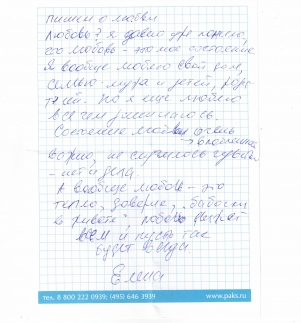 пишем о любви
Любовь? Я давно уже поняла,
что любовь - это мое состояние.
Я вообще люблю свой дом,
семью - мужа и детей,
Но я еще люблю
все чем занимаюсь.
Состояние очень
важно, не случилось
- нет и дела.
А вообще любовь - это
тепло, доверие, "бабочки
в животе" любовь
всем и пусть так
будет всегда.
Елена
тел. 8 800 222 0939; (495) 646 3939
www.paks.ru